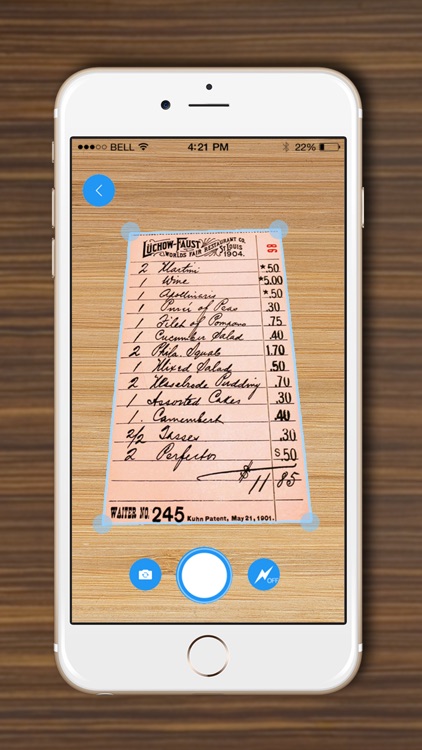 BELL 4:21 PM 22%
LUCHOW-FAUST RESTAURANT CO.
WORLDS FAIR ST LOUIS
1904.
98
2 Martini *.50
1 Wine *5.00
1 Apollinaris *.50
1 Purée of Peas .30
1 Filet of Pompano .75
1 Cucumber Salad .40
2 Phila. Squabs 1.70
1 Mixed Salad .50
2 Nesselrode Pudding .70
1 Assorted Cakes .30
1 Camembert .40
2/2 Tasses .30
2 Perfectos S.50
$11 85
WAITER NO. 245 Kuhn Patent, May 21, 1901.
OFF